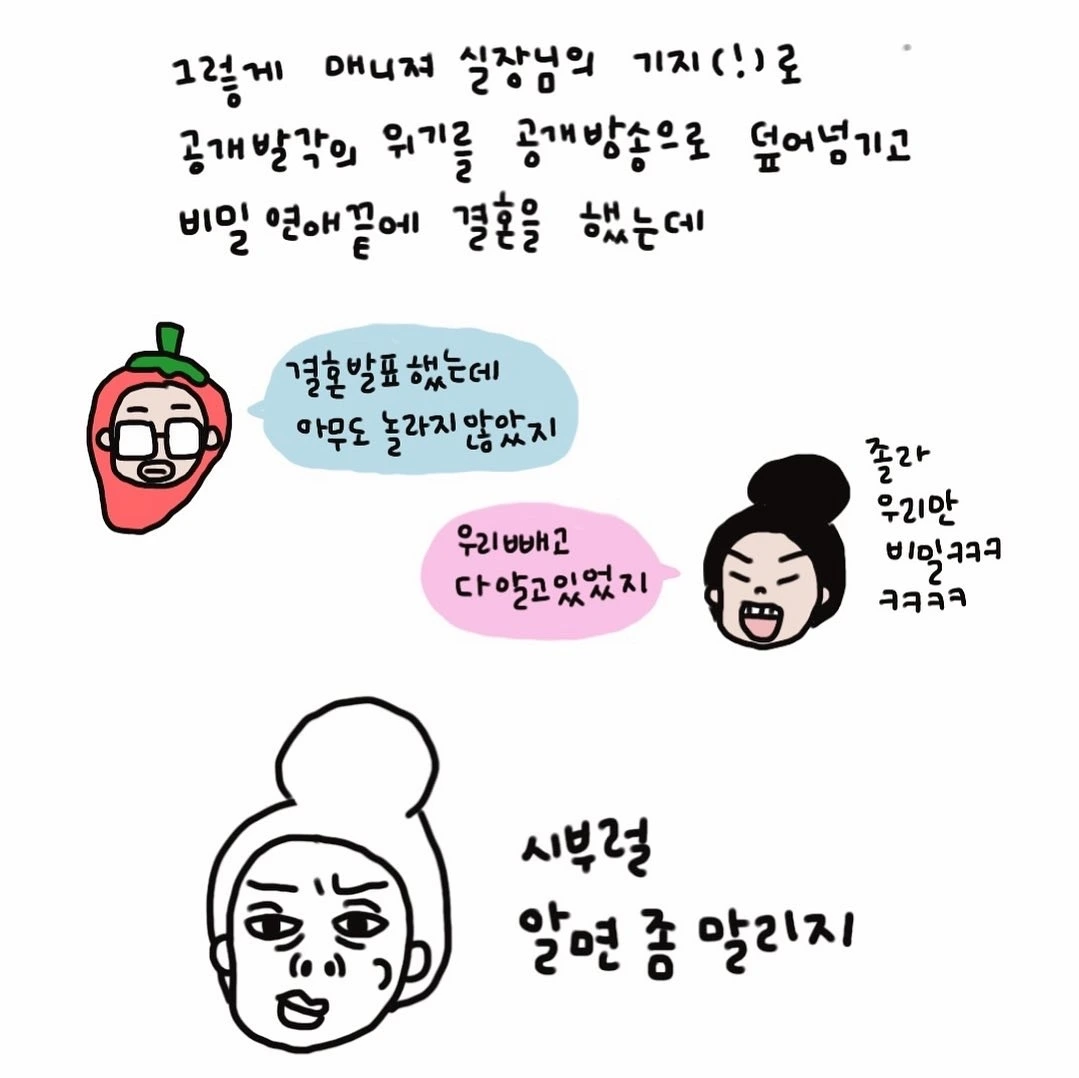 그렇게 매니져 실장님의 기지(!)로
공개발각의 위기를 공개방송으로 덮어넘기고
비밀 연애끝에 결혼을 했는데
결혼발표했는데
아무도 놀라지않았지
우리빼고
다알고있었지
졸라
우리만
비밀ㅋㅋㅋ
ㅋㅋㅋㅋ
시부럴
알면 좀 말리지